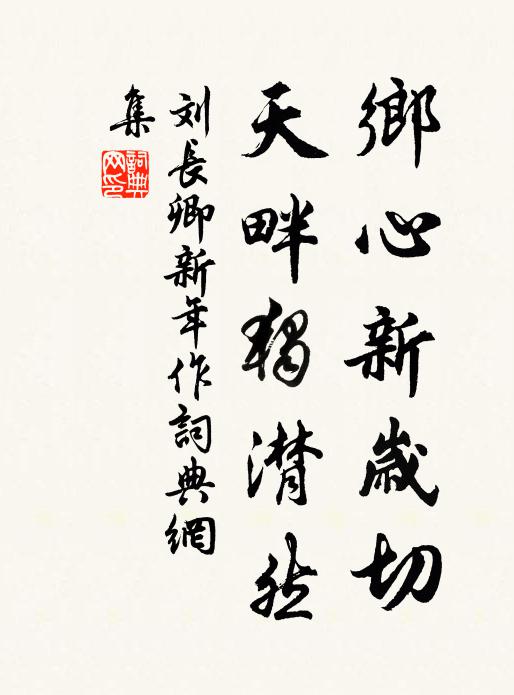 鄉心新歲切
天畔獨潸然
刘長卿新年作詞典網
集
詞典网印